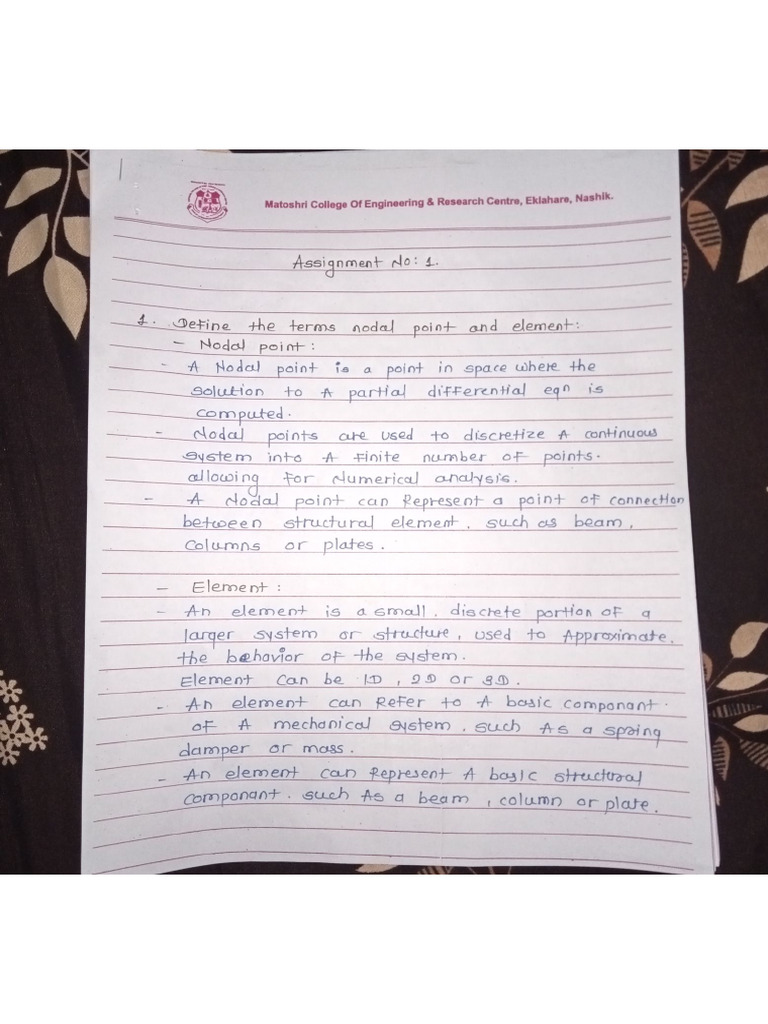 Matoshri College Of Engineering & Research Centre, Eklahare, Nashik.
Assignment No: 1.
1. Define the terms nodal point and element:
- Nodal point:
- A Nodal point is a point in space where the
solution to A partial differential eqn is
computed.
- Nodal points are used to discretize A continuous
system into A finite number of points.
allowing for Numerical analysis.
- A Nodal point can Represent a point of connection
between structural element, such as beam,
columns or plates.
- Element:
- An element is a small, discrete portion of a
larger system or structure, used to Approximate.
the behavior of the system.
Element can be 1D, 2D or 3D.
- An element can Refer to A basic componant.
of A mechanical system, such As a spring
damper or mass.
- An element can Represent A basic structural
componant. such As a beam, column or plate.